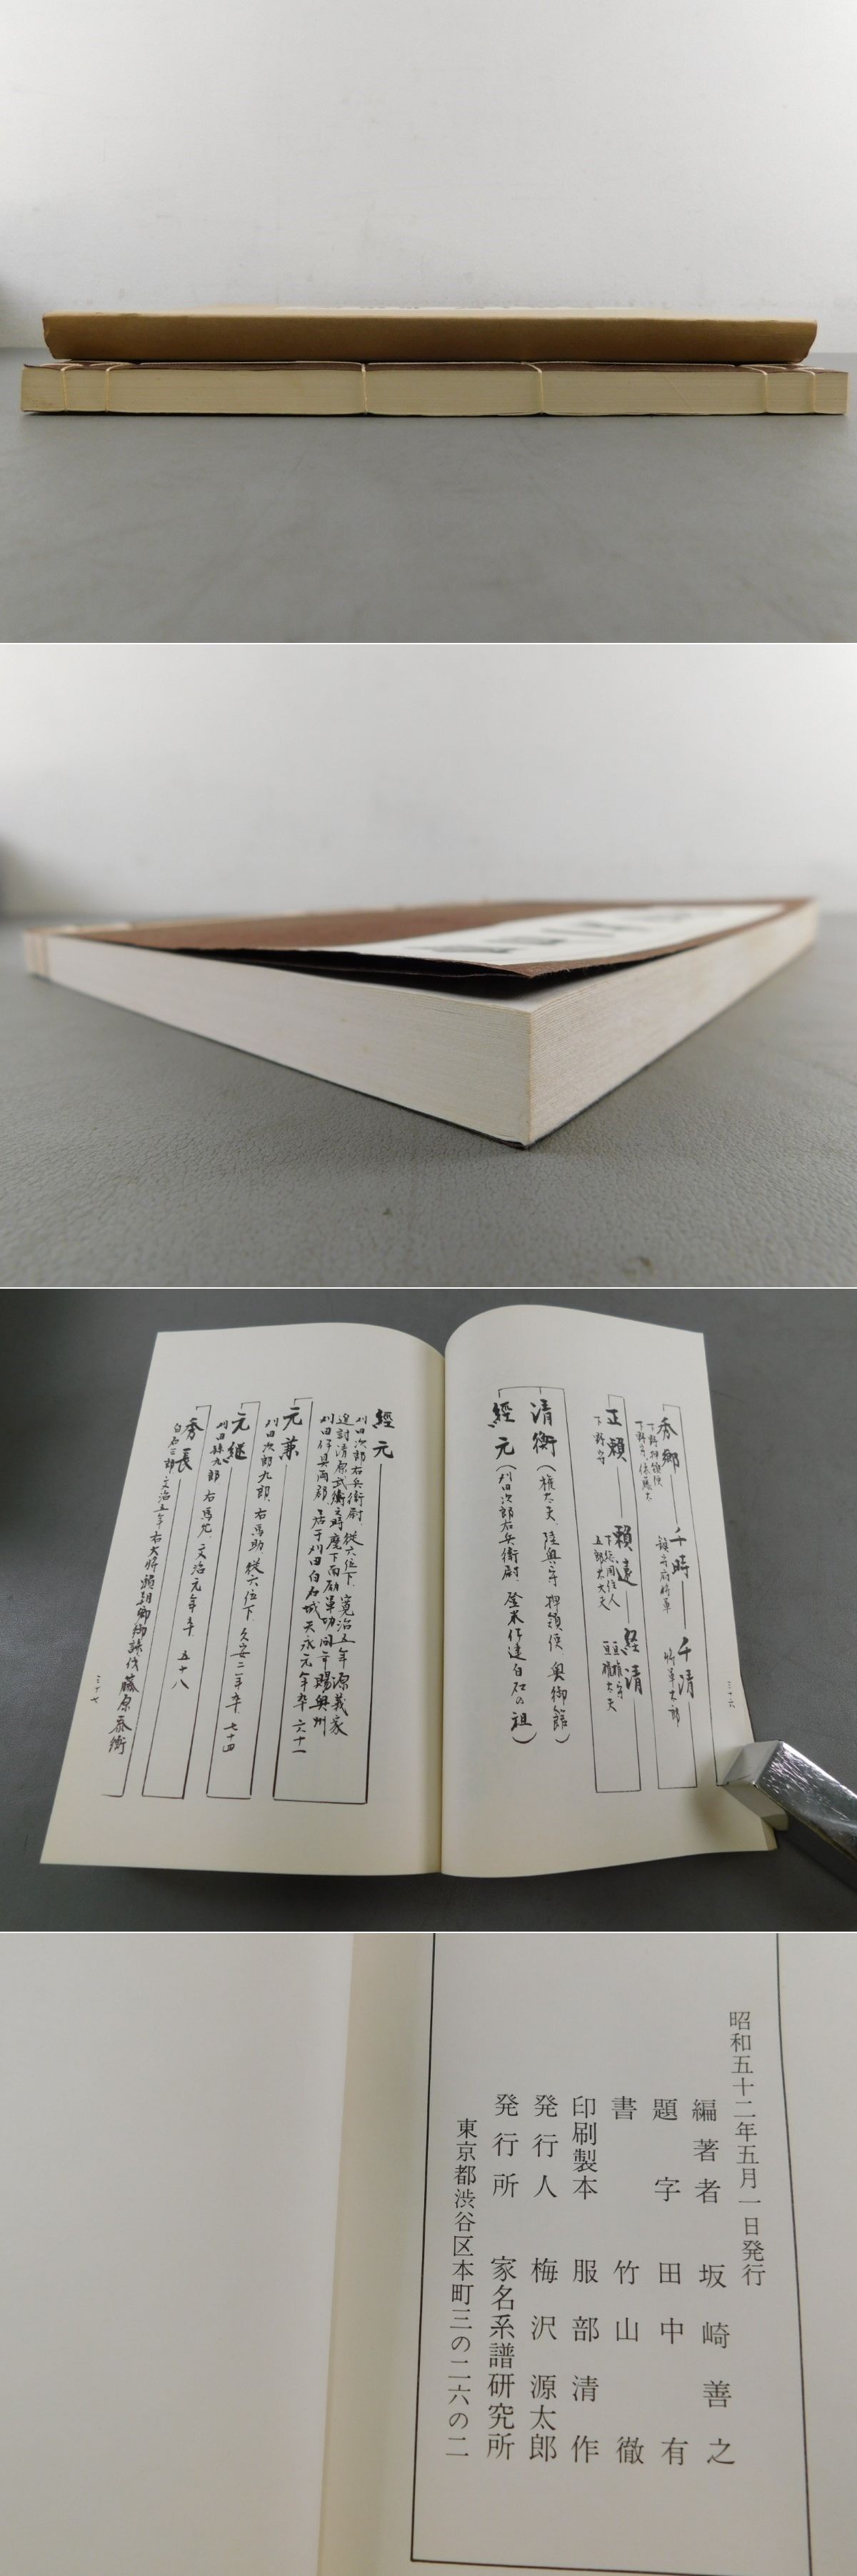 秀郷
千時
鎮守府将軍
千清
将軍太郎
正頼
下野守
頼遠
下総国住人
五郎太大夫
経清
清衡(権太夫、陸奥守 押領使 奥御館)
經元(刈田次郎右兵衛尉
白石の祖)
三十六
經元
刈田次郎右兵衛尉 従六位下、寛治五年源義家
追討清原武衡之時麾下而励軍功同年賜奥州
刈田伊具両郡 居于刈田白石城天永元年卒 六十一
元兼
刈田次郎九郎、右馬助 従六位下 久安二年卒、七十四
元継
右馬允、文治元年卒 五十八
秀長
白石三郎、文治五年右大将頼朝卿御誅伐藤原泰衡
三十七
昭和五十二年五月一日発行
編著者 坂崎善之
題字 田中有
書 竹山徹
印刷製本 服部清作
発行人 梅沢源太郎
発行所 家名系譜研究所
東京都渋谷区本町三の二六の二